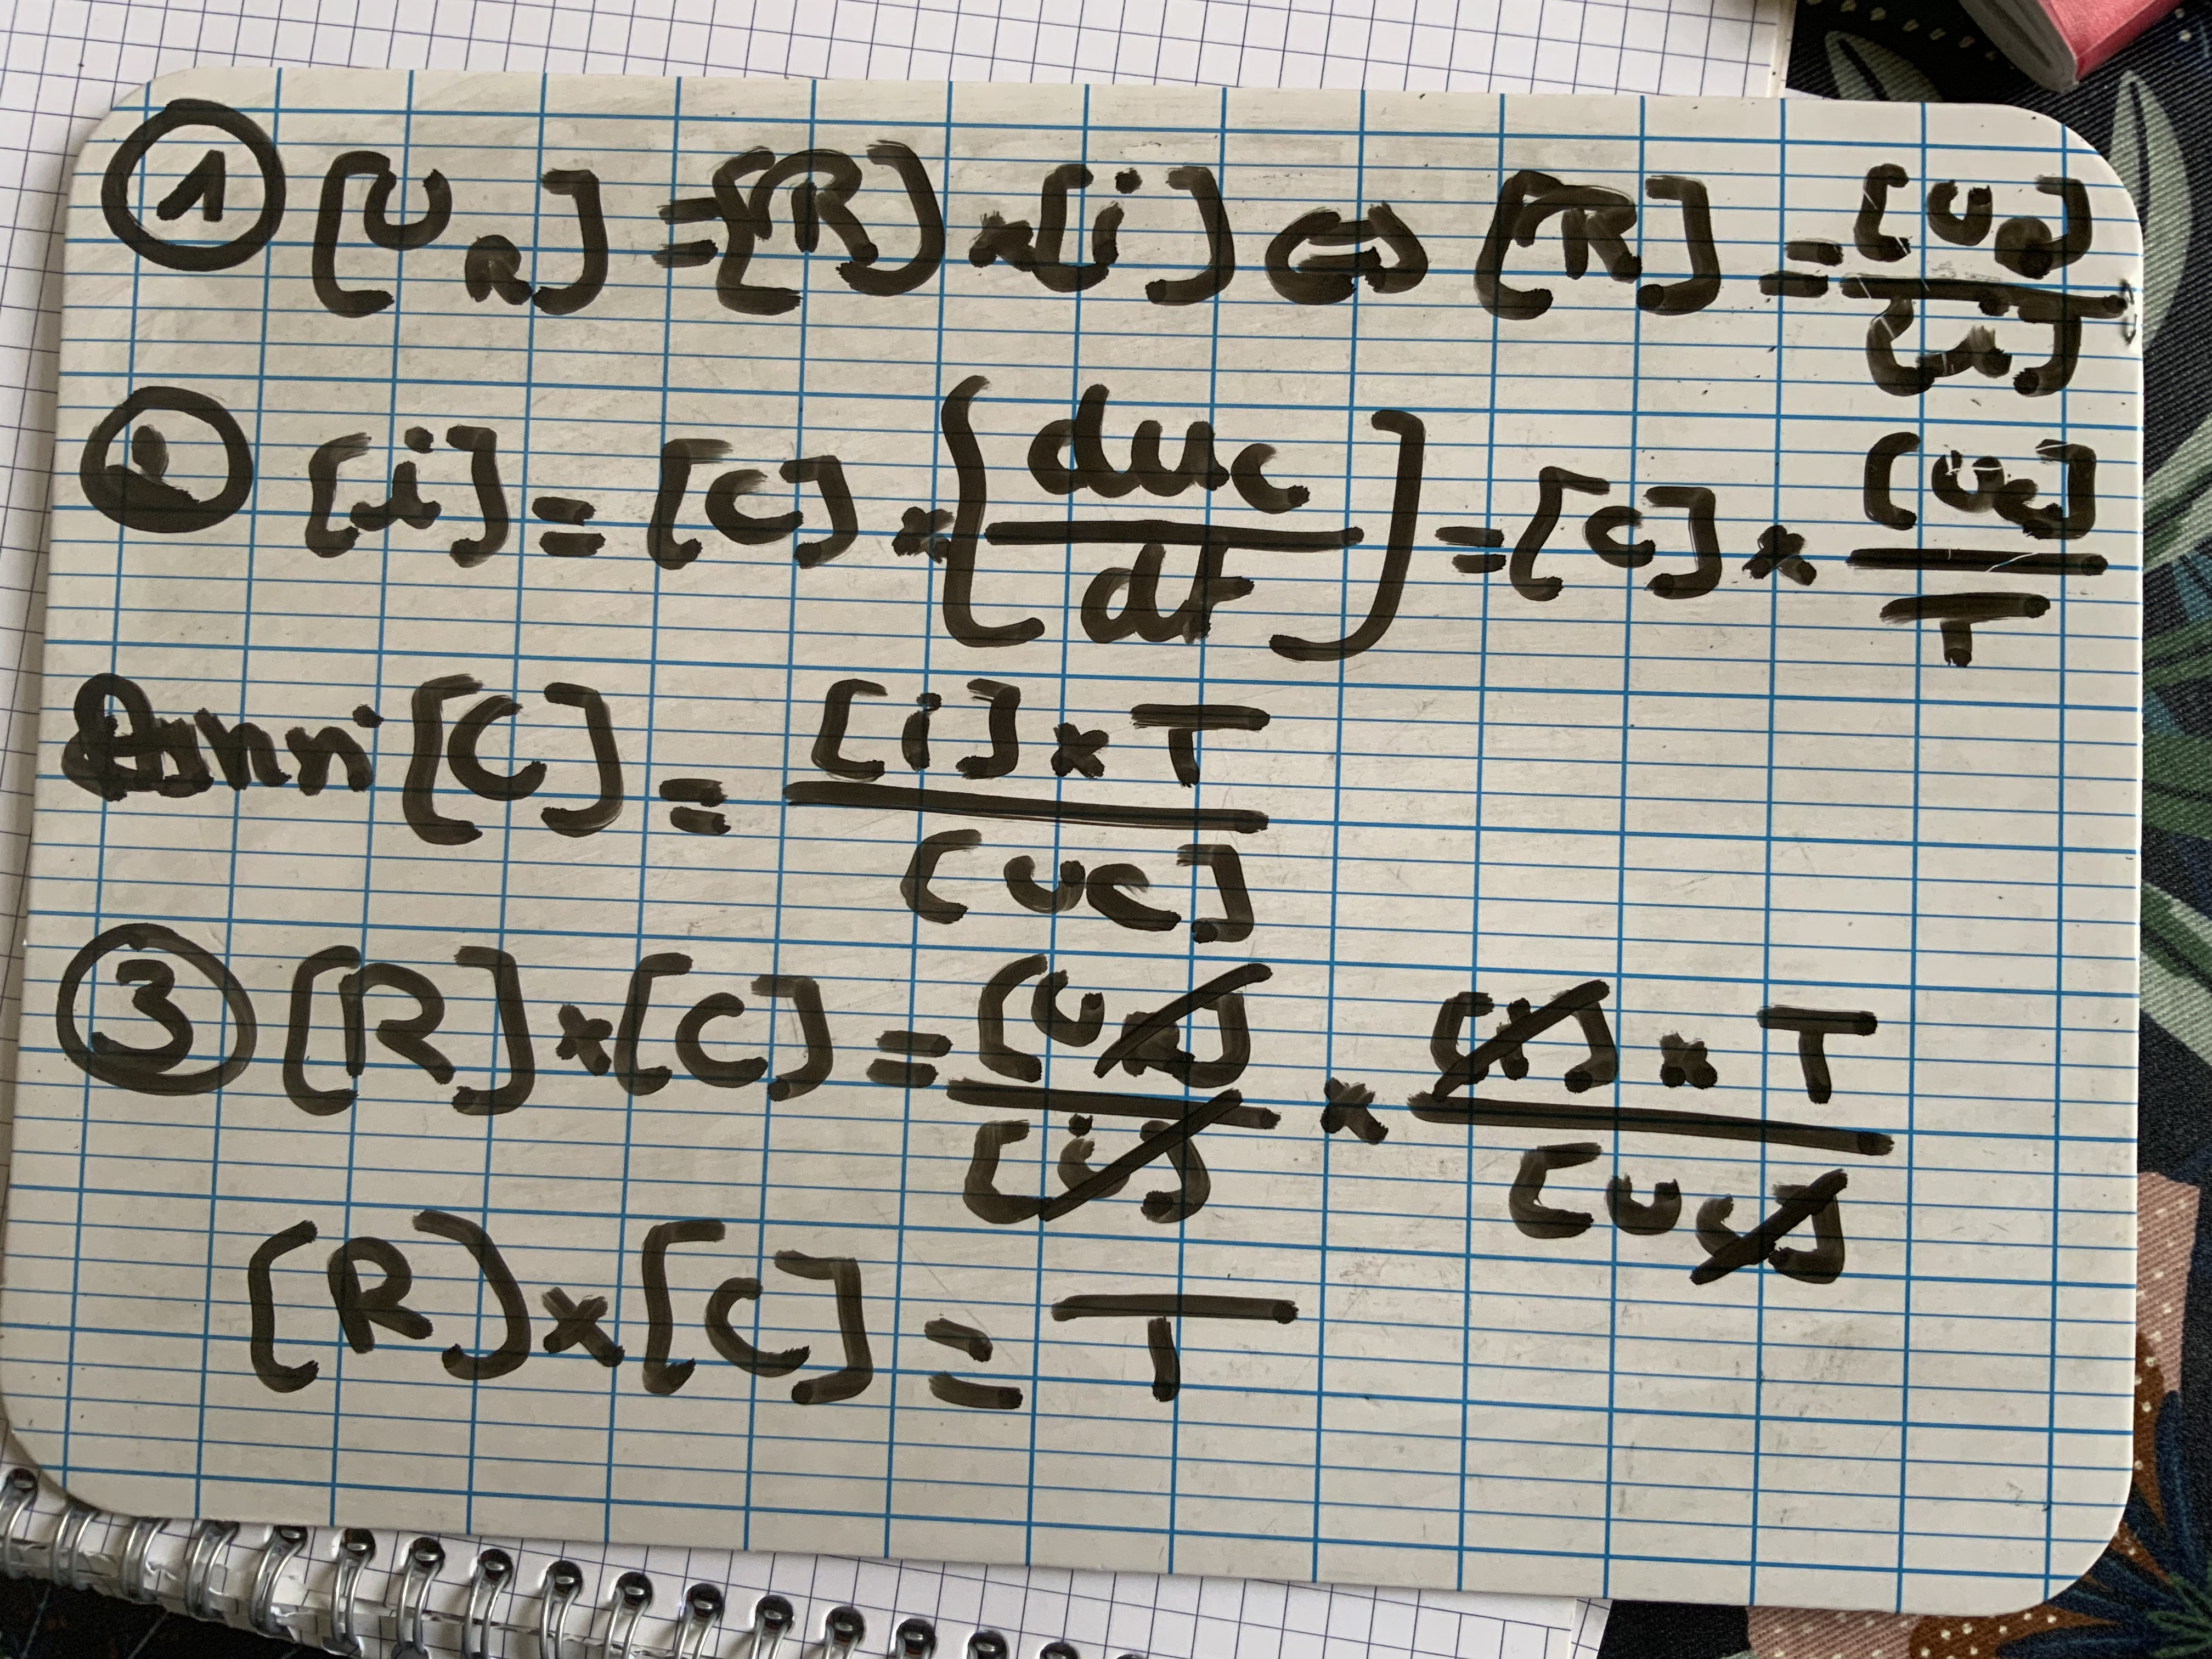 ① [U_R] = [R] × [i] ⇔ [R] = [U_R] / [i]
② [i] = [C] × [duc / dt] = [C] × [uc] / T
Ainsi [C] = [i] × T / [uc]
③ [R] × [C] = [U_R] / [i] × [i] × T / [uc]
[R] × [C] = T